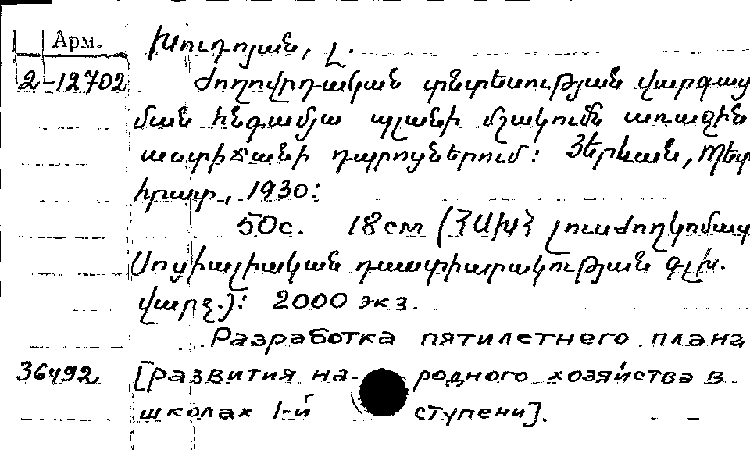 Арм. Խուդոյան, Լ.
2-12702 Ժողովրդական տնտեսության վարգաց
ման հնգամյա պլանի մշակումն առաջին
աստիճանի դպրոցներում: Յերևան, Պետ
հրատ., 1930:
50с. 18см (ՀՍԽՀ լուսժողկոմատ
Սոցիալիական դաստիարակության գլխ.
վարչ.): 2000 экз.
Разработка пятилетнего плана
36492 [развития на- родного хозяйства в
школах 1-й ступени].